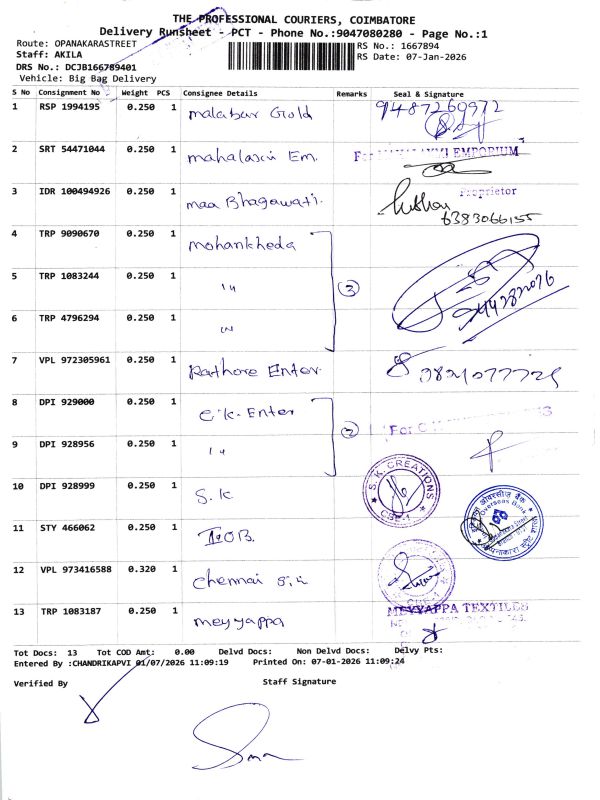 THE PROFESSIONAL COURIERS, COIMBATORE
Delivery Runsheet - PCT - Phone No.:9047080280 - Page No.:1
Route: OPANAKARASTREET
RS No.: 1667894
Staff: AKILA
RS Date: 07-Jan-2026
DRS No.: DCJB166789401
Vehicle: Big Bag Delivery
S No Consignment No Weight PCS Consignee Details Remarks Seal & Signature
1 RSP 1994195 0.250 1 malabar Gold 9487260972
2 SRT 54471044 0.250 1 mahalaxmi Em. For MAHALAXMI EMPORIUM
Proprietor
3 IDR 100494926 0.250 1 maa Bhagawati. 6383066155
4 TRP 9090670 0.250 1 mohankheda
5 TRP 1083244 0.250 1 " 3
6 TRP 4796294 0.250 1 "
7 VPL 972305961 0.250 1 Rathore Enter.
8 DPI 929000 0.250 1 C.K. Enter 2
For
9 DPI 928956 0.250 1 "
S. K. CREATIONS
CBE-1
10 DPI 928999 0.250 1 S.K
Overseas Bank
11 STY 466062 0.250 1 IOB.
12 VPL 973416588 0.320 1 Chennai S.K
13 TRP 1083187 0.250 1 meyyappa MEYYAPPA TEXTILES
Tot Docs: 13 Tot COD Amt: 0.00 Delvd Docs: Non Delvd Docs: Delvy Pts:
Entered By :CHANDRIKAPVI 01/07/2026 11:09:19 Printed On: 07-01-2026 11:09:24
Verified By Staff Signature